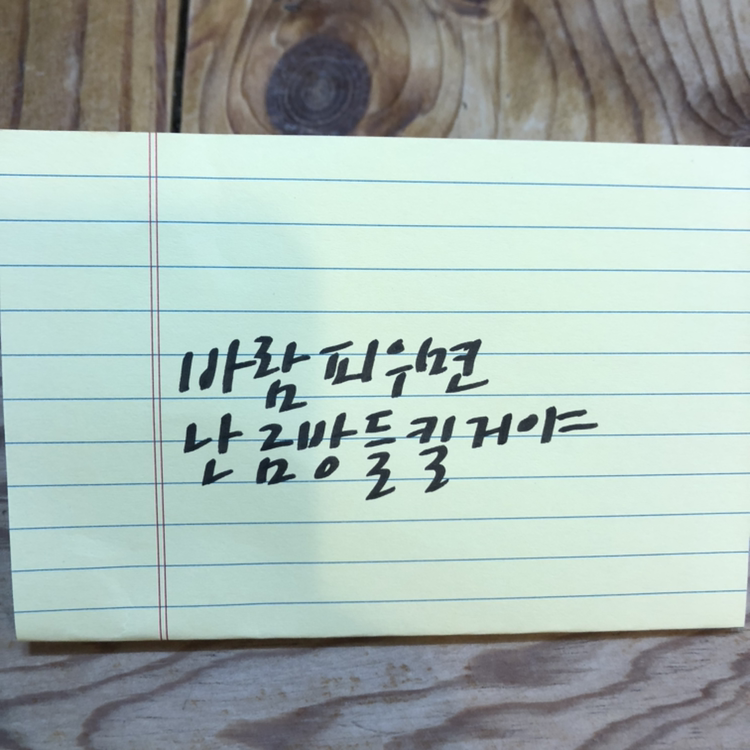 바람 피우면
난 금방 들킬거야